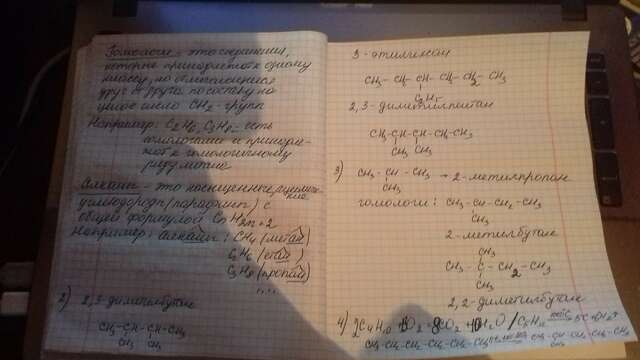 Гомологи – это соединения,
которые принадлежат к одному
классу, но отличающиеся
друг от друга по составу на
целое число CH₂ - групп
Например: C₂H₆, C₃H₈ – есть
гомологами и принадле-
жат к гомологичному
ряду метана
Алканы – это насыщенные
углеводороды (парафины) с
общей формулой CnH2n+2
Например: алканы: CH₄ (метан)
C₂H₆ (этан)
C₃H₈ (пропан)
....
2) 2,3-диметилбутан
CH₃-CH-CH-CH₃
CH₃ CH₃
3-этилгексан
CH₃ - CH₂ - CH - CH₂ - CH₂ - CH₃
C₂H₅
2,3-диметилпентан
CH₃-CH-CH-CH₂-CH₃
CH₃ CH₃
3) CH₃ - CH - CH₃ → 2-метилпропан
CH₃
гомологи: CH₃ - CH - CH₂ - CH₃
CH₃
2-метилбутан
CH₃
CH₃ - C - CH₂ - CH₃
CH₃
2,2-диметилбутан
4)